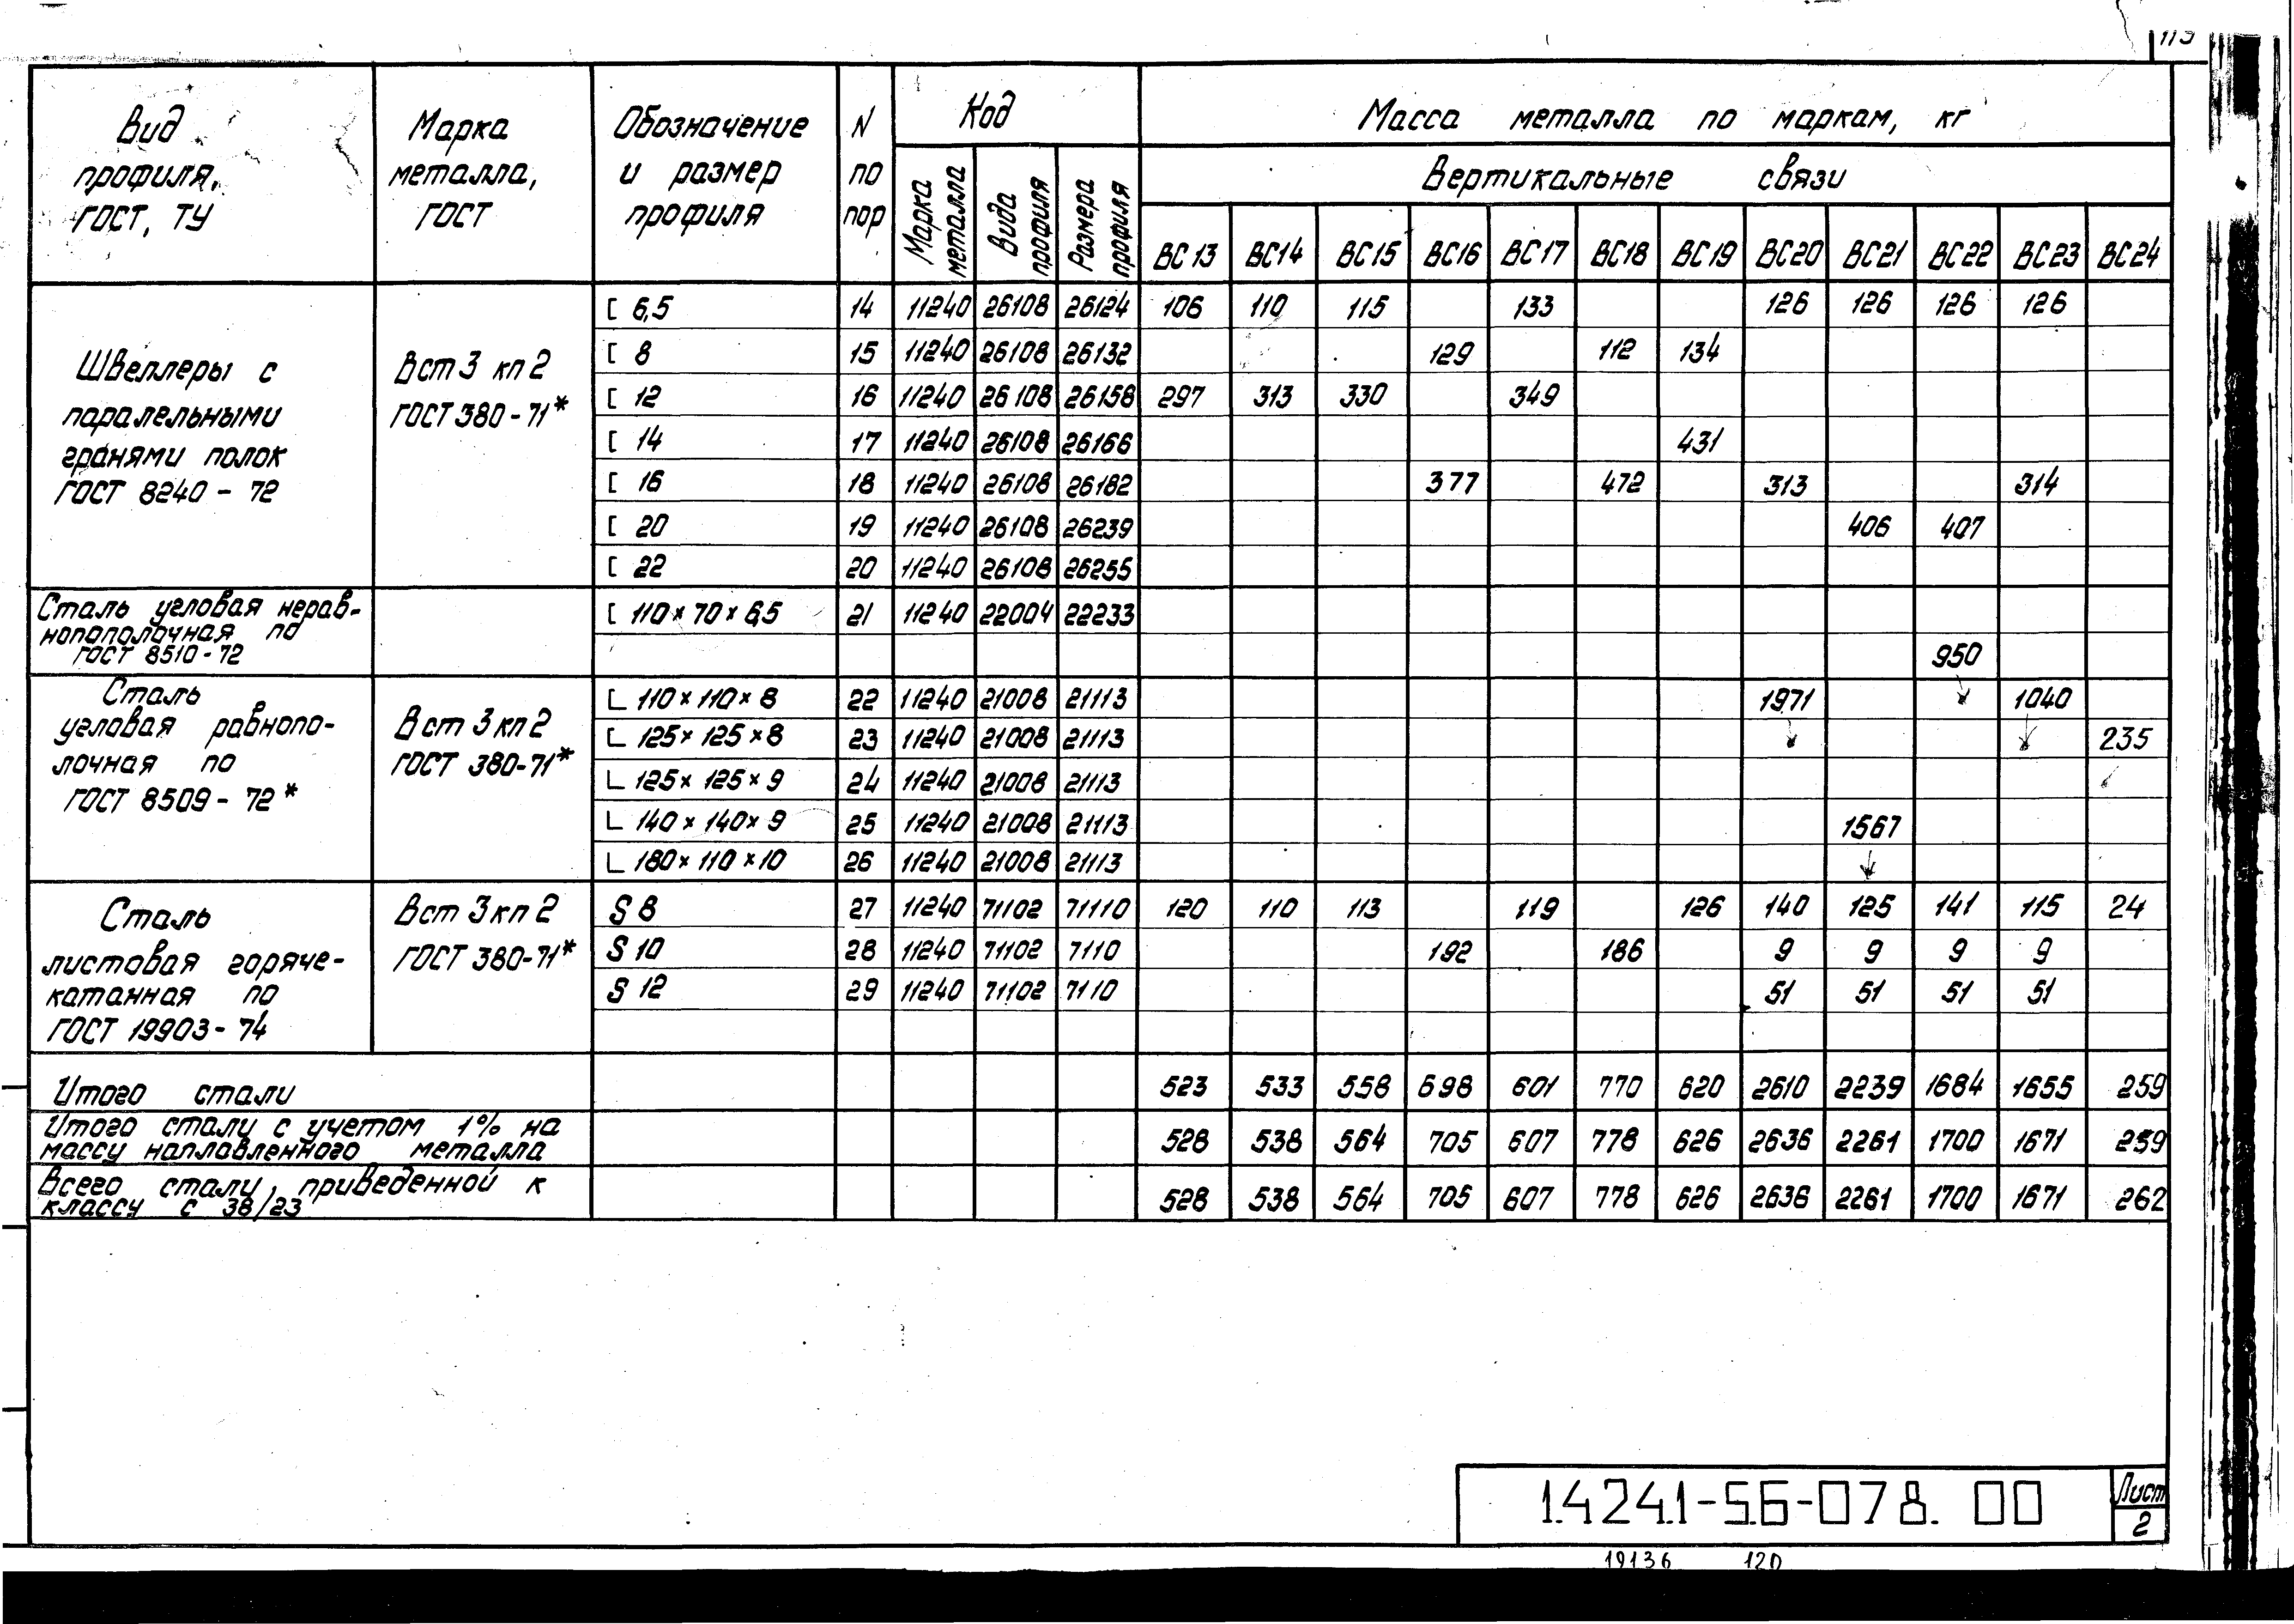 113
Вид профиля, ГОСТ, ТУ | Марка металла, ГОСТ | Обозначение и размер профиля | N по пор | Код | Масса металла по маркам, кг
Марка металла | Вида профиля | Размера профиля | Вертикальные связи
ВС13 | ВС14 | ВС15 | ВС16 | ВС17 | ВС18 | ВС19 | ВС20 | ВС21 | ВС22 | ВС23 | ВС24
Швеллеры с
паралельными
гранями полок
ГОСТ 8240-72
Вст 3 кп 2
ГОСТ 380-71*
[ 6,5 | 14 | 11240 | 26108 | 26124 | 106 | 110 | 115 | 133 | 126 | 126 | 126 | 126
[ 8 | 15 | 11240 | 26108 | 26132 | 129 | 112 | 134
[ 12 | 16 | 11240 | 26108 | 26158 | 297 | 313 | 330 | 349
[ 14 | 17 | 11240 | 26108 | 26166 | 431
[ 16 | 18 | 11240 | 26108 | 26182 | 377 | 472 | 313 | 314
[ 20 | 19 | 11240 | 26108 | 26239 | 406 | 407
[ 22 | 20 | 11240 | 26108 | 26255
Сталь угловая нерав-
нопополочная по
ГОСТ 8510-72
[ 110×70×6,5 | 21 | 11240 | 22004 | 22233
950
Сталь
угловая равнопо-
лочная по
ГОСТ 8509-72*
Вст 3 кп 2
ГОСТ 380-71*
∟ 110×110×8 | 22 | 11240 | 21008 | 21113 | 1971 | 1040
∟ 125×125×8 | 23 | 11240 | 21008 | 21113 | 235
∟ 125×125×9 | 24 | 11240 | 21008 | 21113
∟ 140×140×9 | 25 | 11240 | 21008 | 21113 | 1567
∟ 180×110×10 | 26 | 11240 | 21008 | 21113
Сталь
листовая горяче-
катанная по
ГОСТ 19903-74
Вст 3 кп 2
ГОСТ 380-71*
S 8 | 27 | 11240 | 71102 | 71110 | 120 | 110 | 113 | 119 | 126 | 140 | 125 | 141 | 115 | 24
S 10 | 28 | 11240 | 71102 | 7110 | 192 | 186 | 9 | 9 | 9 | 9
S 12 | 29 | 11240 | 71102 | 7110 | 51 | 51 | 51 | 51
Итого стали | 523 | 533 | 558 | 698 | 601 | 770 | 620 | 2610 | 2239 | 1684 | 1655 | 259
Итого стали с учетом 1% на
массу наплавленного металла | 528 | 538 | 564 | 705 | 607 | 778 | 626 | 2636 | 2261 | 1700 | 1671 | 259
Всего стали, приведенной к
классу С 38/23 | 528 | 538 | 564 | 705 | 607 | 778 | 626 | 2636 | 2261 | 1700 | 1671 | 262
1.424.1-5.6-078.00
Лист
2
19136 120